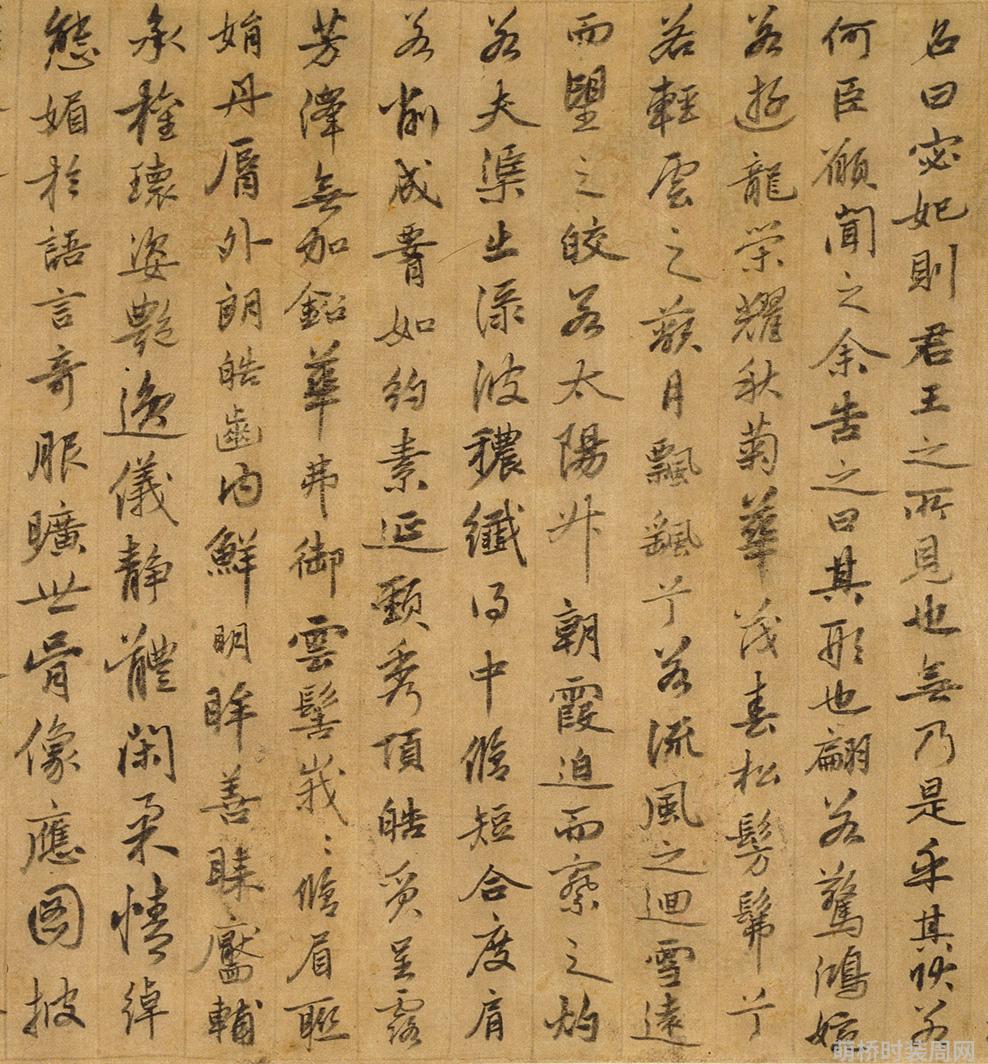 名曰宓妃則君王之所見也無乃是乎其狀若
何臣願聞之余告之曰其形也翩若驚鴻婉
若遊龍榮耀秋菊華茂春松髣髴兮
若輕雲之蔽月飄颻兮若流風之迴雪遠
而望之皎若太陽升朝霞迫而察之灼
若夫渠出淥波穠纖得中脩短合度肩
若削成腰如約素延頸秀項皓質呈露
芳澤無加鉛華弗御雲髻峩〻脩眉聯
娟丹脣外朗皓齒内鮮明眸善睞靨輔
承權瓌姿艷逸儀静體閑柔情綽
態媚於語言奇服曠世骨像應圖披
萌桥时装周网